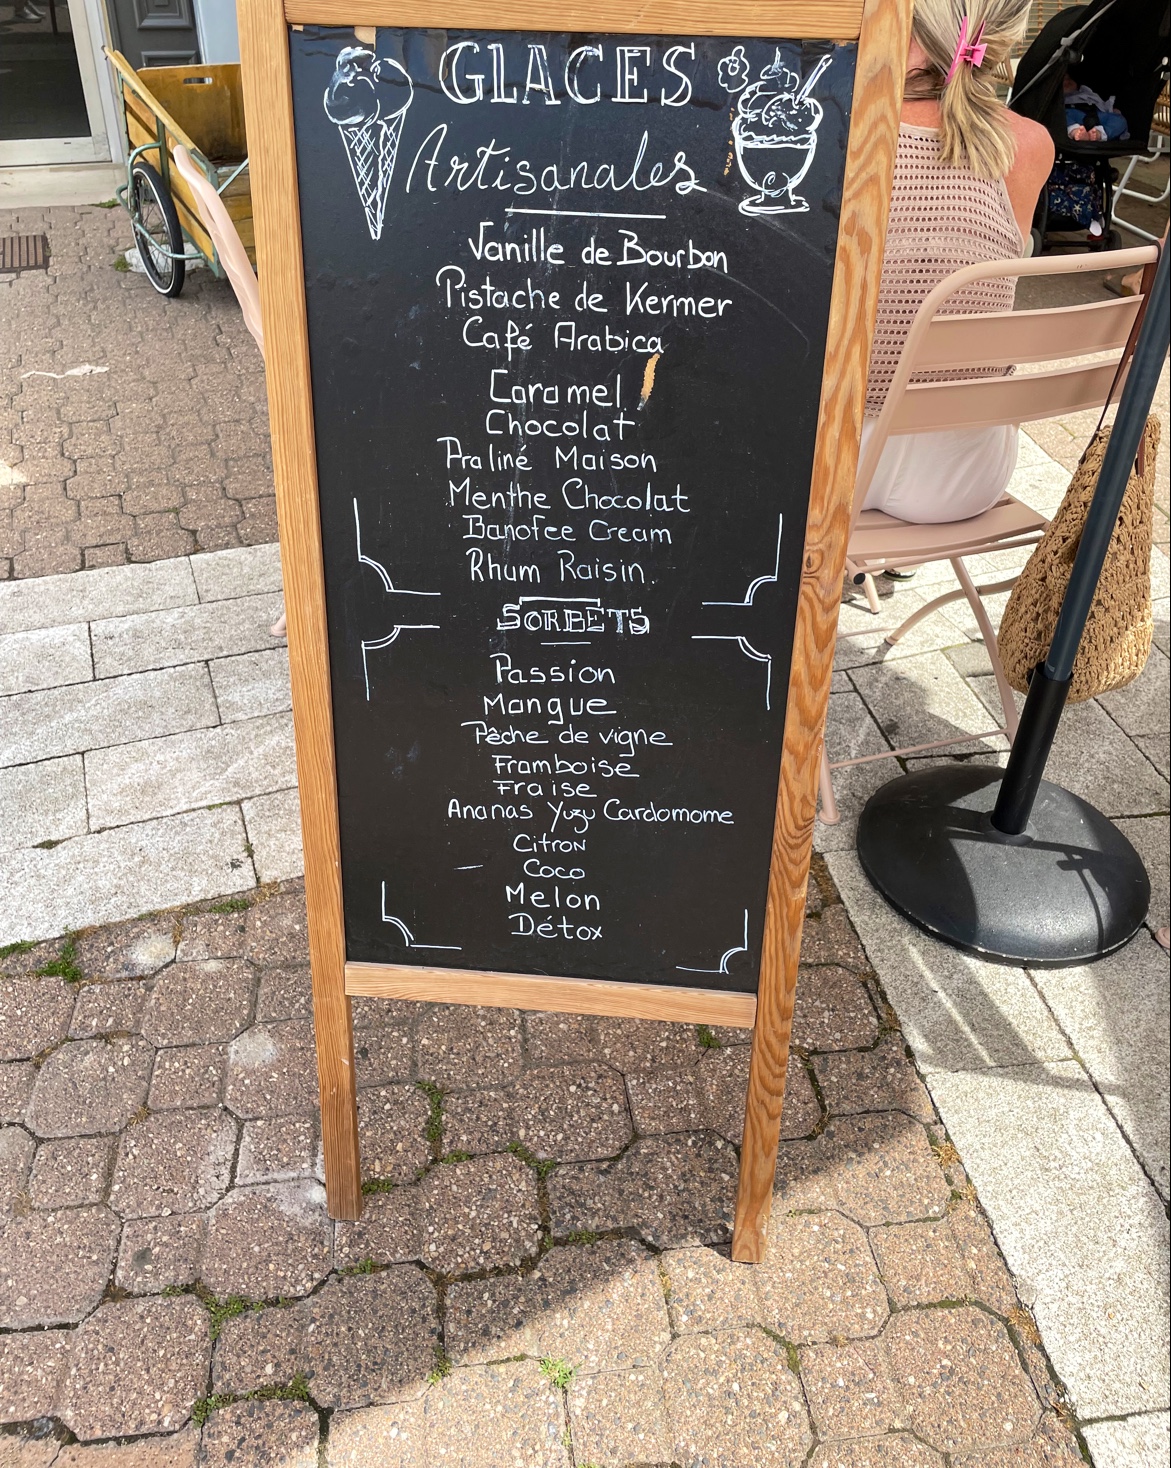 GLACES
Artisanales
Vanille de Bourbon
Pistache de Kermer
Café Arabica
Caramel
Chocolat
Praliné Maison
Menthe Chocolat
Banofee Cream
Rhum Raisin.
SORBETS
Passion
Mangue
Pêche de vigne
Framboise
Fraise
Ananas Yuzu Cardomome
Citron
Coco
Melon
Détox